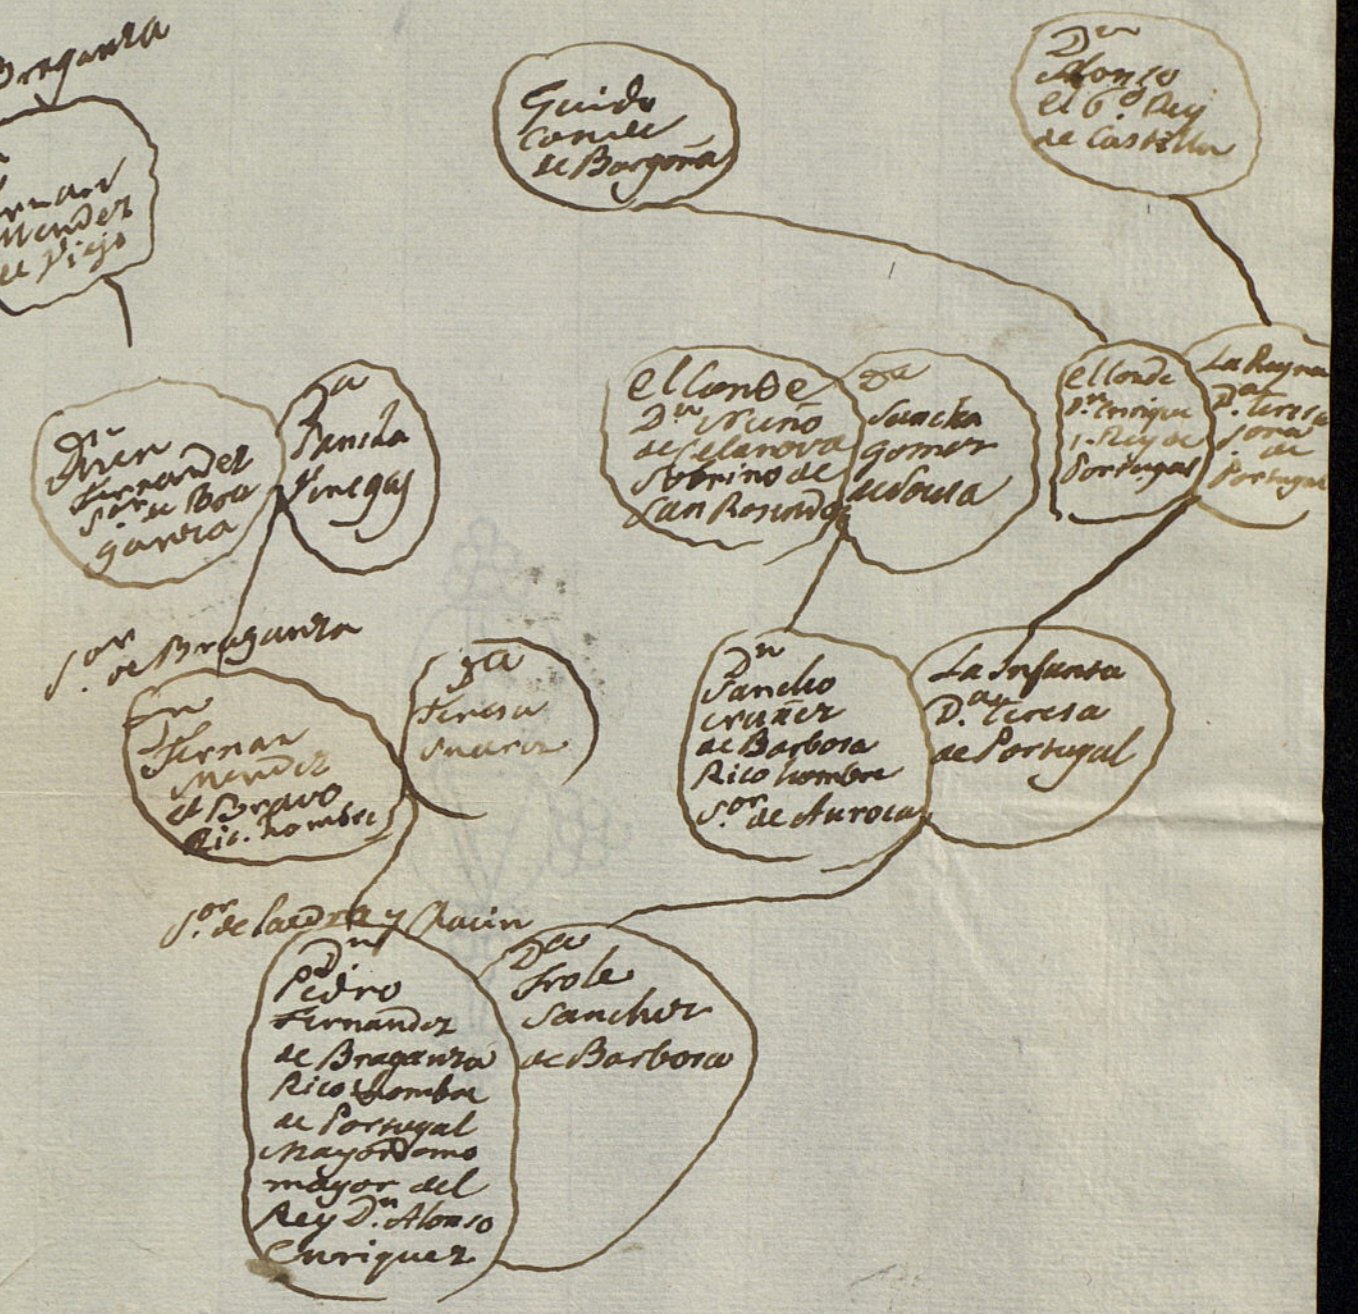 Braganza
Mendez
el Viejo
Guido
Conde
de Borgoña
Dn
Alonso
el 6º Rey
de Castilla
Fernandez
Sor de Bra
ganza
Da
Venegas
el Conde
Dn Nuño
de Celanova
Sobrino de
San Rosendo
Da
Sancha
Gomez
de Sousa
el Conde
Dn Enrique
1. Rey de
Portugal
La Reyna
Da. Teresa
Sora
de
Portugal
Sor. de Braganza
Dn
Fernan
Mendez
el Bravo
Ric. hombre
Da
Teresa
Suarez
Dn
Sancho
Nuñez
de Barbosa
Rico hombre
Sor. de Auroca
La Infanta
Da. Teresa
de Portugal
Sor. de Laedra y Chacin
Dn
Pedro
Fernandez
de Braganza
Rico hombre
de Portugal
Mayordomo
mayor del
Rey Dn. Alonso
Enriquez
Da
Frole
Sanchez
de Barbosa